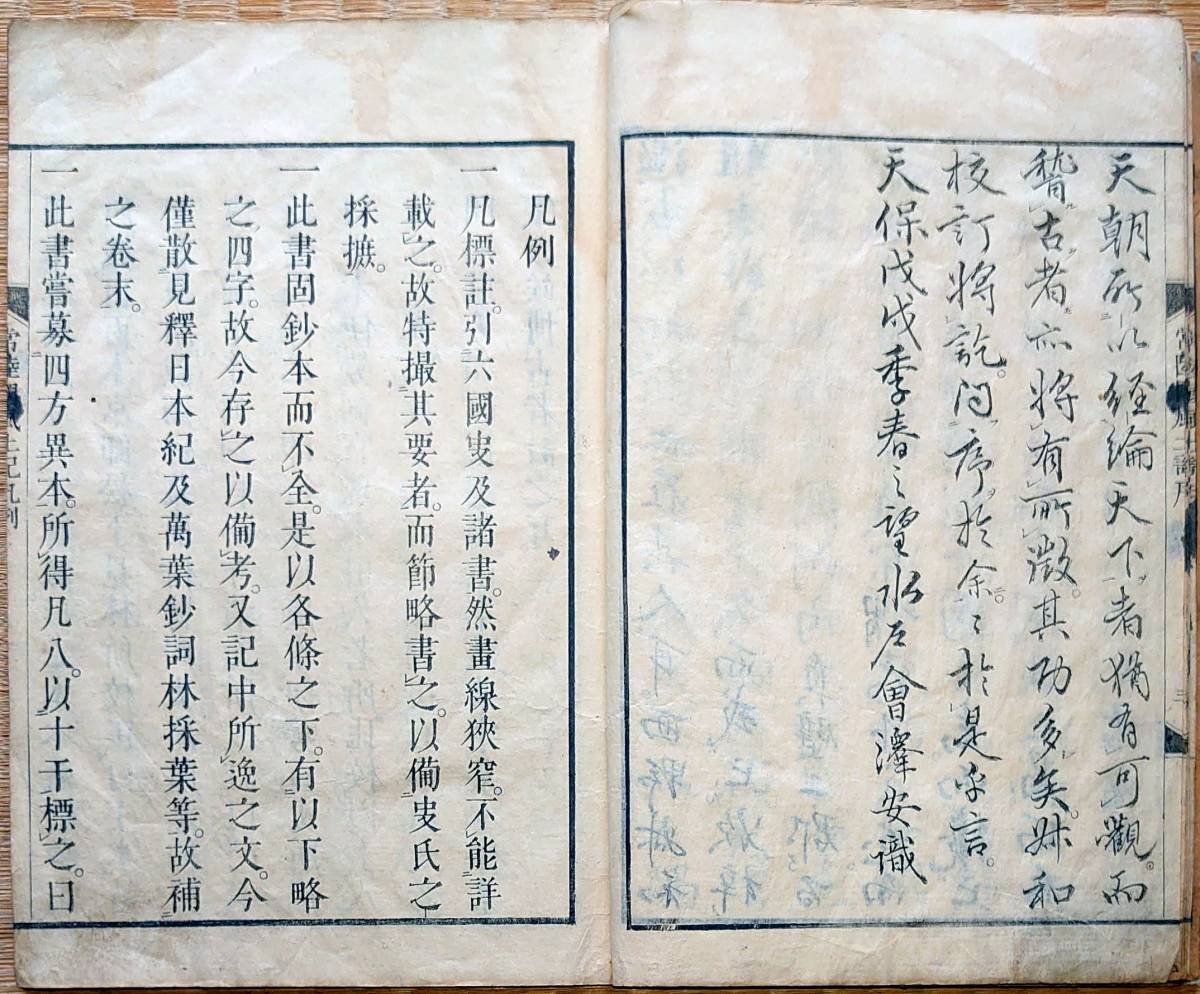 天朝所以經綸天下者猶有可觀。而
稽古者亦將有所徴。其功多矣。
校訂將訖。問序於余。〻於是乎言。
天保戊戌季春之望水戸會澤安識
凡例
一凡標註。引六國史及諸書。然畫線狹窄。不能詳
載之。故特撮其要者。而節略書之。以備史氏之
採摭。
一此書固鈔本而不全。是以各條之下。有以下略
之四字。故今存之以備考。又記中所逸之文。今
僅散見釋日本紀及萬葉鈔詞林採葉等。故補
之卷末。
一此書嘗募四方異本。所得凡八。以十干標之。曰